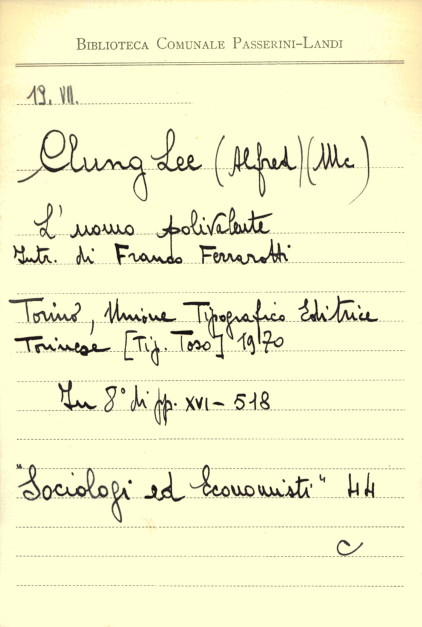 BIBLIOTECA COMUNALE PASSERINI-LANDI
19. VII.
Clung Lee (Alfred) (Mc)
L'uomo polivalente
Intr. di Franco Ferrarotti
Torino, Unione Tipografico Editrice
Torinese [Tip. Toso] 1970
In 8° di pp. XVI-518
"Sociologi ed Economisti" 44
C